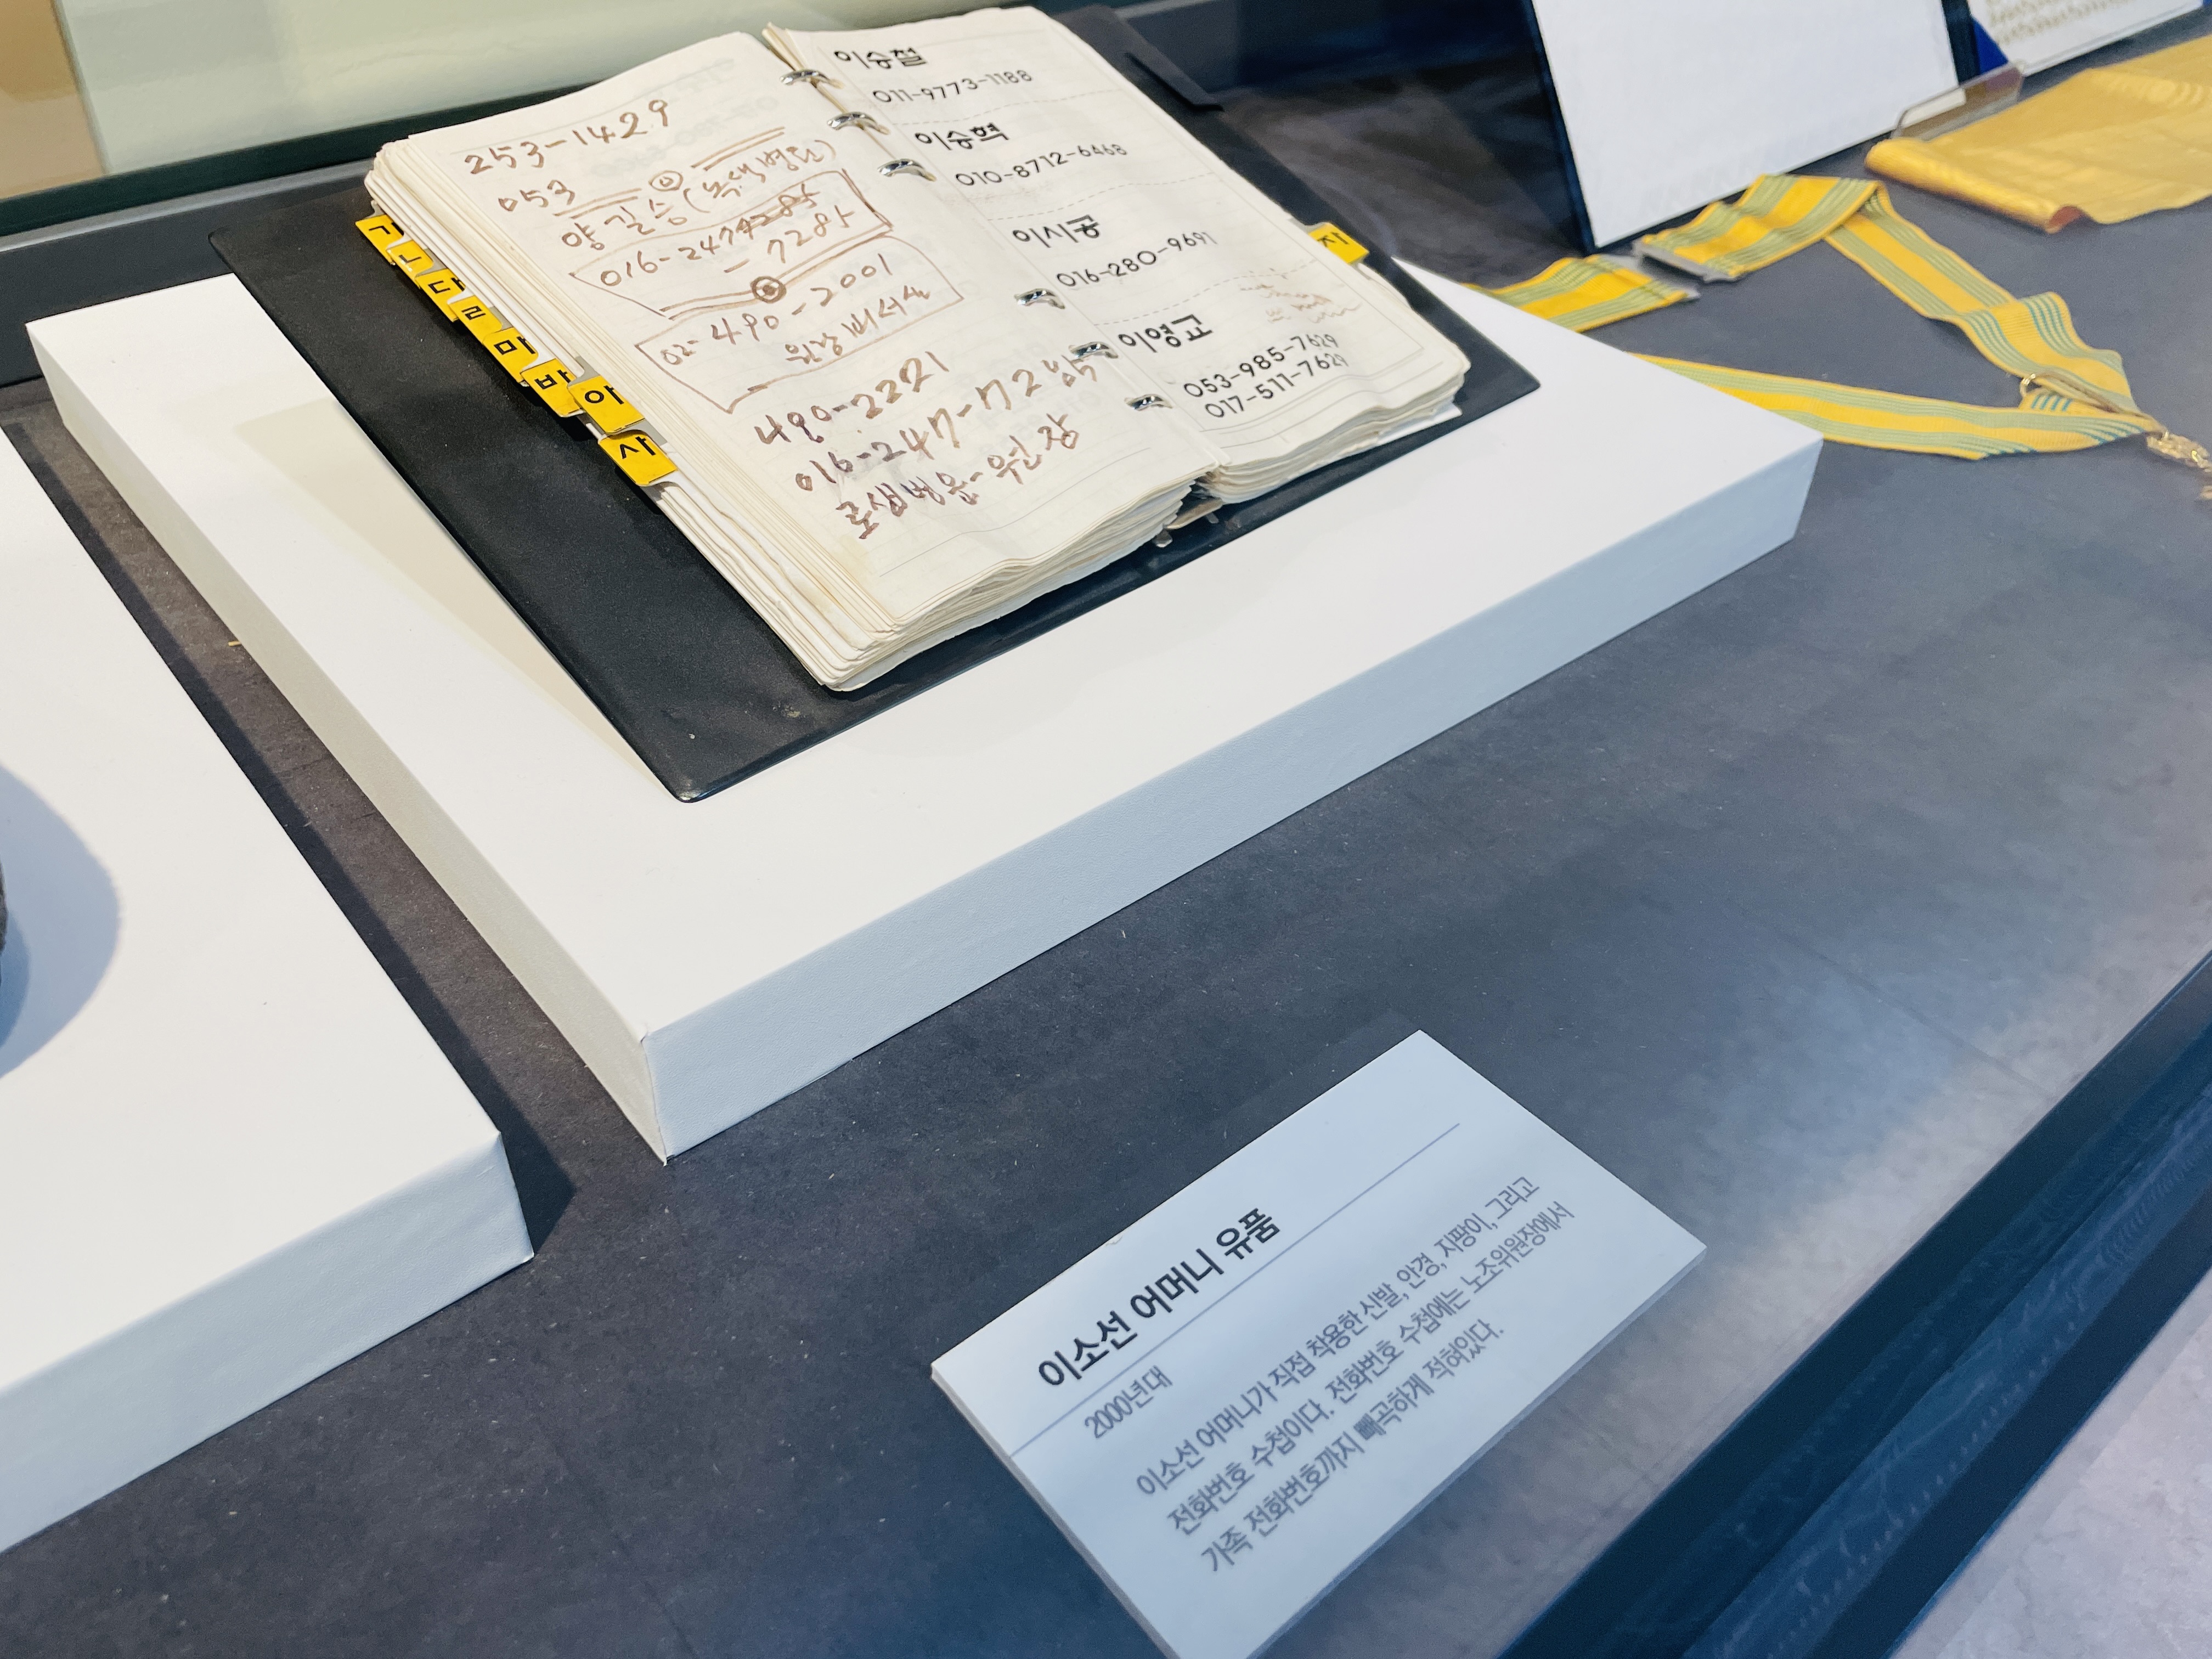 253-1429
053
양길승(녹색병원)
016-247
- 7284
02-490-2001
원장비서실
490-2221
016-247-72
록색병원-원장
ㄱ
ㄴ
다
ㄹ
마
바
아
사
이승철
011-9773-1188
이승혁
010-8712-6468
이시공
016-280-9691
이영교
053-985-7629
017-511-7629
자
이소선 어머니 유품
2000년대
이소선 어머니가 직접 착용한 신발, 안경, 지팡이, 그리고
전화번호 수첩이다. 전화번호 수첩에는 노조위원장에서
가족 전화번호까지 빼곡하게 적혀있다.